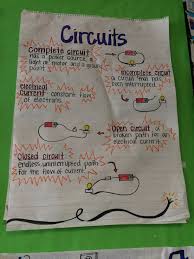 Circuits
Complete circuit
has a power source, a
light or motor and a
point
Incomplete circuit
a circuit that has
been interrupted.
electrical
current- constant flow
of electrons.
Open circuit - a
broken path for an
electrical current
Closed circuit
endless, uninterrupted path
for the flow of current.